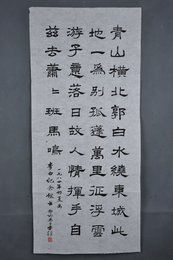 青山橫北郭白水繞東城此
地一為別孤蓬萬里征浮雲
游子意落日故人情揮手自
茲去蕭〻班馬鳴
一九八
李白紀念館